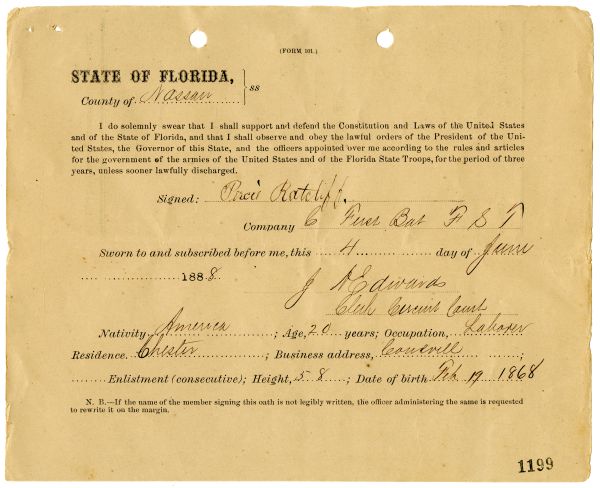 (FORM 101.)
STATE OF FLORIDA, } ss
County of Nassau
I do solemnly swear that I shall support and defend the Constitution and Laws of the United States
and of the State of Florida, and that I shall observe and obey the lawful orders of the President of the Uni-
ted States, the Governor of this State, and the officers appointed over me according to the rules and articles
for the government of the armies of the United States and of the Florida State Troops, for the period of three
years, unless sooner lawfully discharged.
Signed: Ratcliff.
Company C First Bat F S T
Sworn to and subscribed before me, this 4 day of June
1888 J Edwards
Clerk Circuit Court
Nativity, America ; Age, 20 years; Occupation, Laborer
Residence. Chester ; Business address, ;
Enlistment (consecutive); Height, 5-8 ; Date of birth Feb 19 1868
N. B.—If the name of the member signing this oath is not legibly written, the officer administering the same is requested
to rewrite it on the margin.
1199